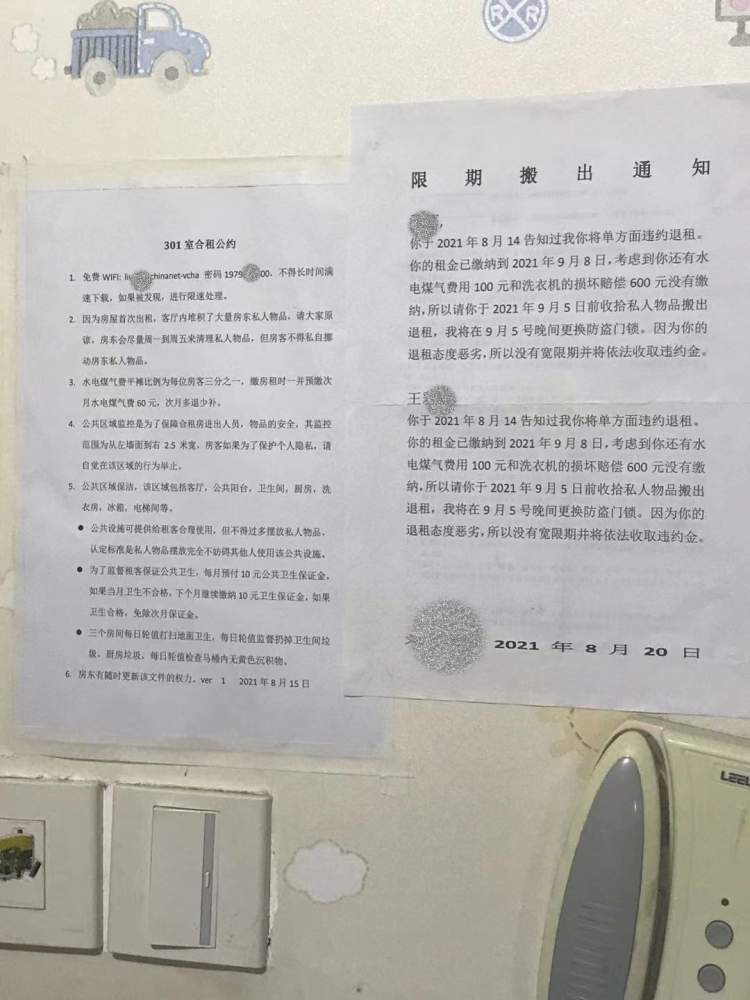 301 室合租公约
1. 免费 WIFI: chinanet-vcha 密码 1979 00，不得长时间满
速下载，如果被发现，进行限速处理。
2. 因为房屋首次出租，客厅内堆积了大量房东私人物品，请大家原
谅，房东会尽量周一到周五来清理私人物品，但房客不得私自挪
动房东私人物品。
3. 水电煤气费平摊比例为每位房客三分之一，缴房租时一并预缴次
月水电煤气费 60 元，次月多退少补。
4. 公共区域监控是为了保障合租房进出人员，物品的安全，其监控
范围为从左墙面到右 2.5 米宽，房客如果为了保护个人隐私，请
自觉在该区域的行为举止。
5. 公共区域保洁，该区域包括客厅，公共阳台，卫生间，厨房，洗
衣房，冰箱，电梯间等。
● 公共设施可提供给租客合理使用，但不得过多摆放私人物品，
认定标准是私人物品摆放完全不妨碍其他人使用该公共设施。
● 为了监督租客保证公共卫生，每月预付 10 元公共卫生保证金，
如果当月卫生不合格，下个月继续缴纳 10 元卫生保证金，如果
卫生合格，免除次月保证金。
● 三个房间每日轮值打扫地面卫生，每日轮值监督扔掉卫生间垃
圾，厨房垃圾，每日轮值检查马桶内无黄色沉积物。
6. 房东有随时更新该文件的权力。ver 1 2021 年 8 月 15 日
限期搬出通知
你于 2021 年 8 月 14 告知过我你将单方面违约退租。
你的租金已缴纳到 2021 年 9 月 8 日，考虑到你还有水
电煤气费用 100 元和洗衣机的损坏赔偿 600 元没有缴
纳，所以请你于 2021 年 9 月 5 日前收拾私人物品搬出
退租，我将在 9 月 5 号晚间更换防盗门锁。因为你的
退租态度恶劣，所以没有宽限期并将依法收取违约金。
王
你于 2021 年 8 月 14 告知过我你将单方面违约退租。
你的租金已缴纳到 2021 年 9 月 8 日，考虑到你还有水
电煤气费用 100 元和洗衣机的损坏赔偿 600 元没有缴
纳，所以请你于 2021 年 9 月 5 日前收拾私人物品搬出
退租，我将在 9 月 5 号晚间更换防盗门锁。因为你的
退租态度恶劣，所以没有宽限期并将依法收取违约金。
2021 年 8 月 20 日
R R